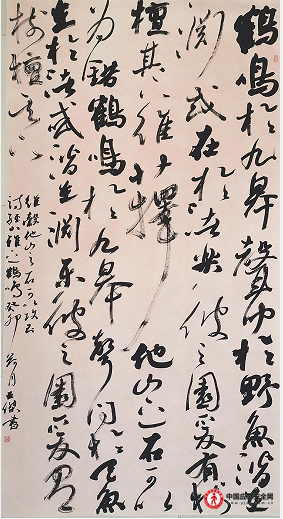 鶴鳴於九皋聲聞於野魚潛在
淵或在於渚樂彼之園爰有樹
檀其下維蘀他山之石可以
为錯鶴鳴於九皋聲聞於天魚
在於渚或潛在淵樂彼之園爰有
樹檀其下
維穀他山之石可以攻玉
詩經小雅之鶴鳴癸卯
月書
中国应急安全网